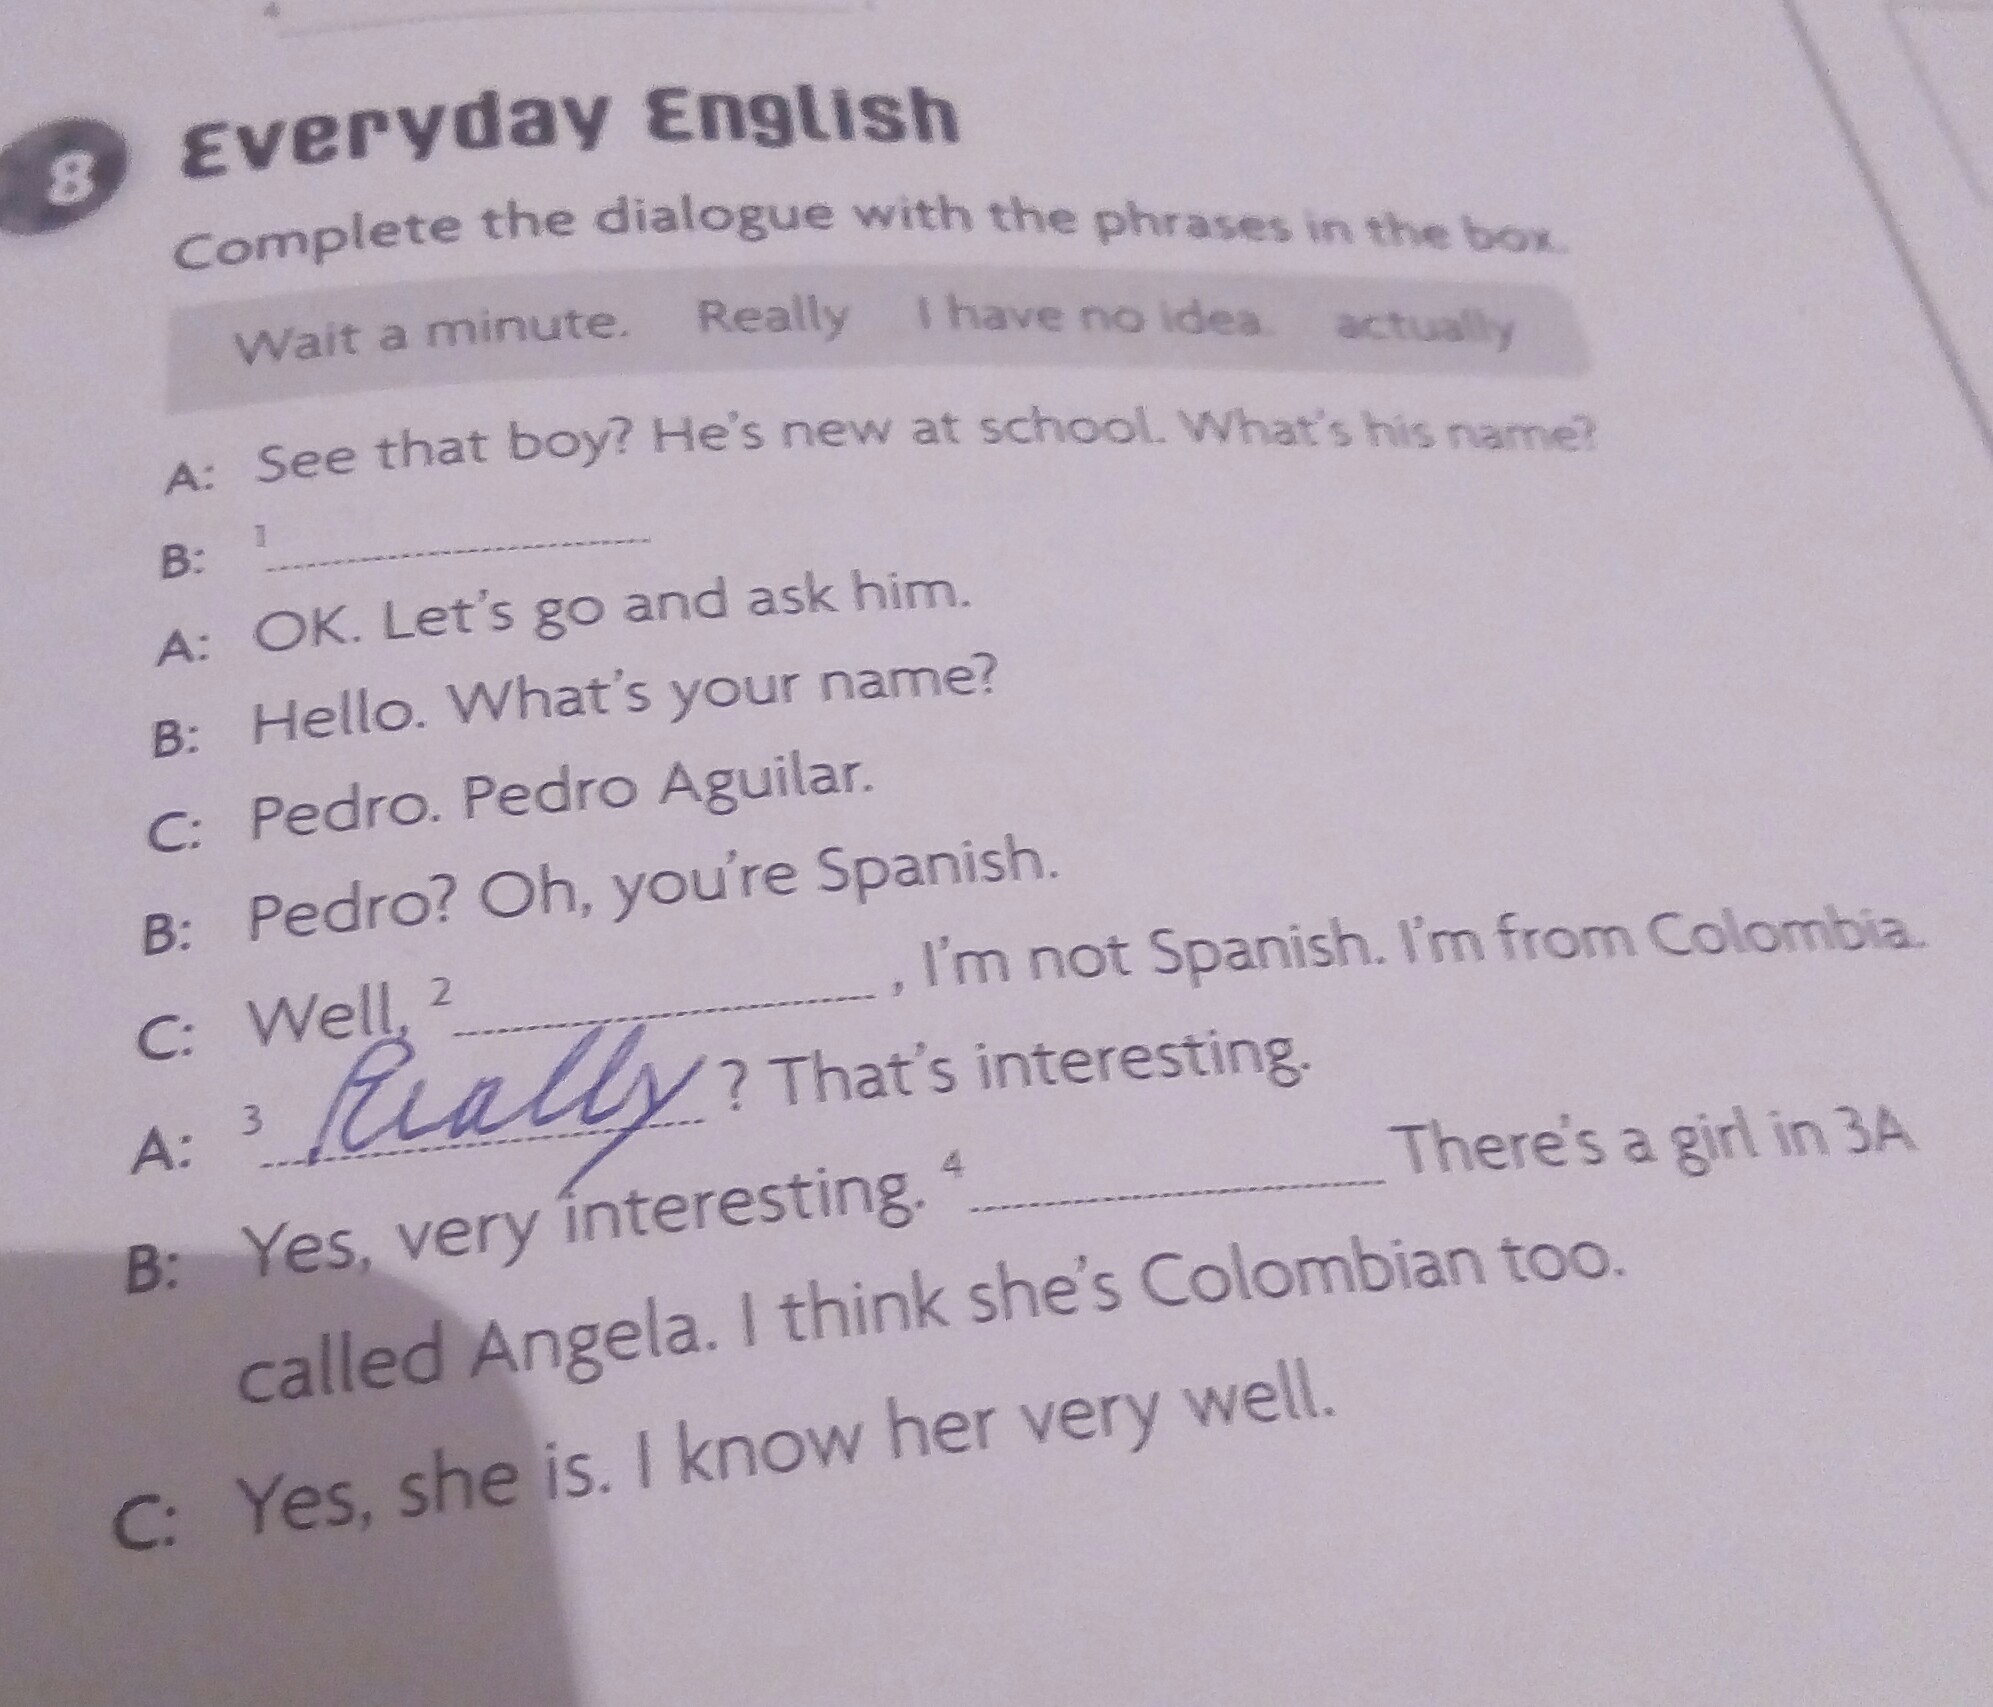 8 Everyday English
Complete the dialogue with the phrases in the box.
Wait a minute. Really I have no idea. actually
A: See that boy? He's new at school. What's his name?
B: 1
A: OK. Let's go and ask him.
B: Hello. What's your name?
C: Pedro. Pedro Aguilar.
B: Pedro? Oh, you're Spanish.
C: Well, 2 , I'm not Spanish. I'm from Colombia.
A: 3 Really ? That's interesting.
B: Yes, very interesting. 4 There's a girl in 3A
called Angela. I think she's Colombian too.
C: Yes, she is. I know her very well.